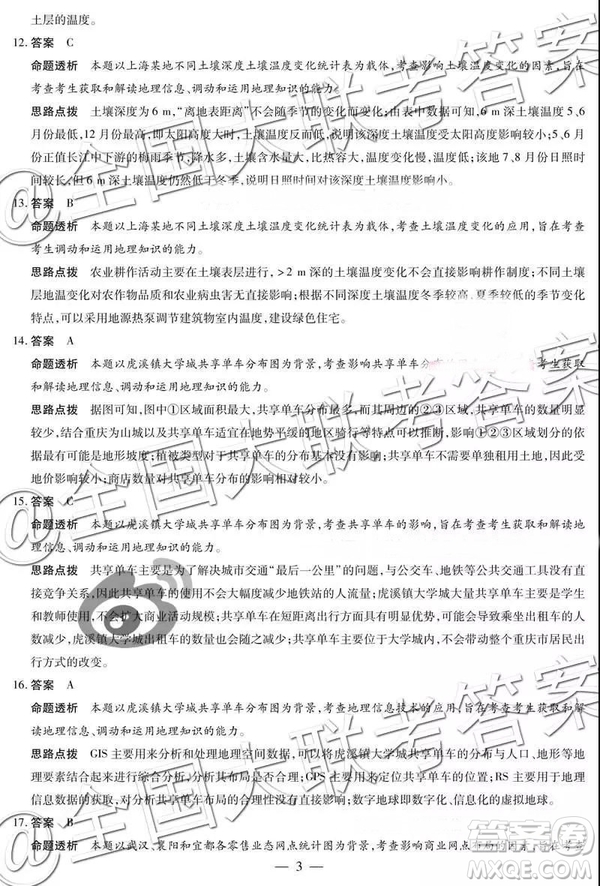 土层的温度。
12. 答案 C
命题透析 本题以上海某地不同土壤深度土壤温度变化统计表为载体,考查影响土壤温度变化的因素,旨在
考查考生获取和解读地理信息、调动和运用地理知识的能力。
思路点拨 土壤深度为6 m,“离地表距离”不会随季节的变化而变化;由表中数据可知,6 m深土壤温度5、6
月份最低,12月份最高,即太阳高度大时,土壤温度反而低,说明该深度土壤受太阳高度影响较小;5、6月
份正值长江中下游的梅雨季节,降水多,土壤含水量大,比热容大,温度变化慢,温度低;该地7、8月份日照时
间较长,但6 m深土壤温度仍然低于冬季,说明日照时间对该深度土壤温度影响小。
13. 答案 B
命题透析 本题以上海某地不同土壤深度土壤温度变化统计表为载体,考查土壤温度变化的应用,旨在考查
考生调动和运用地理知识的能力。
思路点拨 农业耕作活动主要在土壤表层进行,>2 m深的土壤温度变化不会直接影响耕作制度;不同土
层地温变化对农作物品质和农业病虫害无直接影响;根据不同深度土壤温度的冬、夏季节温度的季节变化
特点,可以采用地源热泵调节建筑物室内温度,建设绿色住宅。
14. 答案 A
命题透析 本题以虎溪镇大学城共享单车分布图为背景,考查影响共享单车分布的
考生获取
和解读地理信息、调动和运用地理知识的能力。
思路点拨 据图可知,图中①区域面积最大,共享单车分布最多,而其周边的②③区域,共享单车数量明显
较少,结合重庆为山城以及共享单车适宜在地势平缓的地区骑行等特点可以推断,①②③区域划分的依
据最有可能是地形坡度;植被类型对于共享单车的分布影响较小;共享单车不需要单独租用土地,因此受
地价影响较小;商店数量对共享单车影响较小。
15. 答案 C
命题透析 本题以虎溪镇大学城共享单车分布图为背景,考查共享单车的影响,旨在考查考生获取和解读地理
信息、调动和运用地理知识的能力。
思路点拨 共享单车主要是为了解决城市交通“最后一公里”的问题,与公交车、地铁等公共交通工具没有直
接竞争关系,因此不会大幅度减少地铁站的人流量;虎溪镇大学城大量共享单车投放主要是方便了学生
和教师使用,不会扩大商业活动规模;共享单车在短距离出行方面具有优势,可能会导致乘坐出租车的人
数减少,虎溪镇大学城出租车的数量也会随之减少;共享单车主要位于大学城,不会带动整个重庆市居民出
行方式的改变。
16. 答案 A
命题透析 本题以虎溪镇大学城共享单车分布图为背景,考查地理信息技术的应用,旨在考查考生获取和解
读地理信息、调动和运用地理知识的能力。
思路点拨 GIS主要用来分析和处理地理空间数据,可以将虎溪镇大学城共享单车的分布与人口、地形等地
理要素结合起来进行综合分析;GPS主要用来定位,对分析共享单车的分布没有直接作用;RS主要用于地理
信息数据的获取,对分析共享单车布局的合理性没有直接影响;数字地球即数字化、信息化的虚拟地球。
17. 答案 B
命题透析 本题以武汉、襄阳和宜都各零售业态网点统计图为背景,考查影响商业网点
3
@全国大联考答案
@全国大联考答案
@全国大联考答案